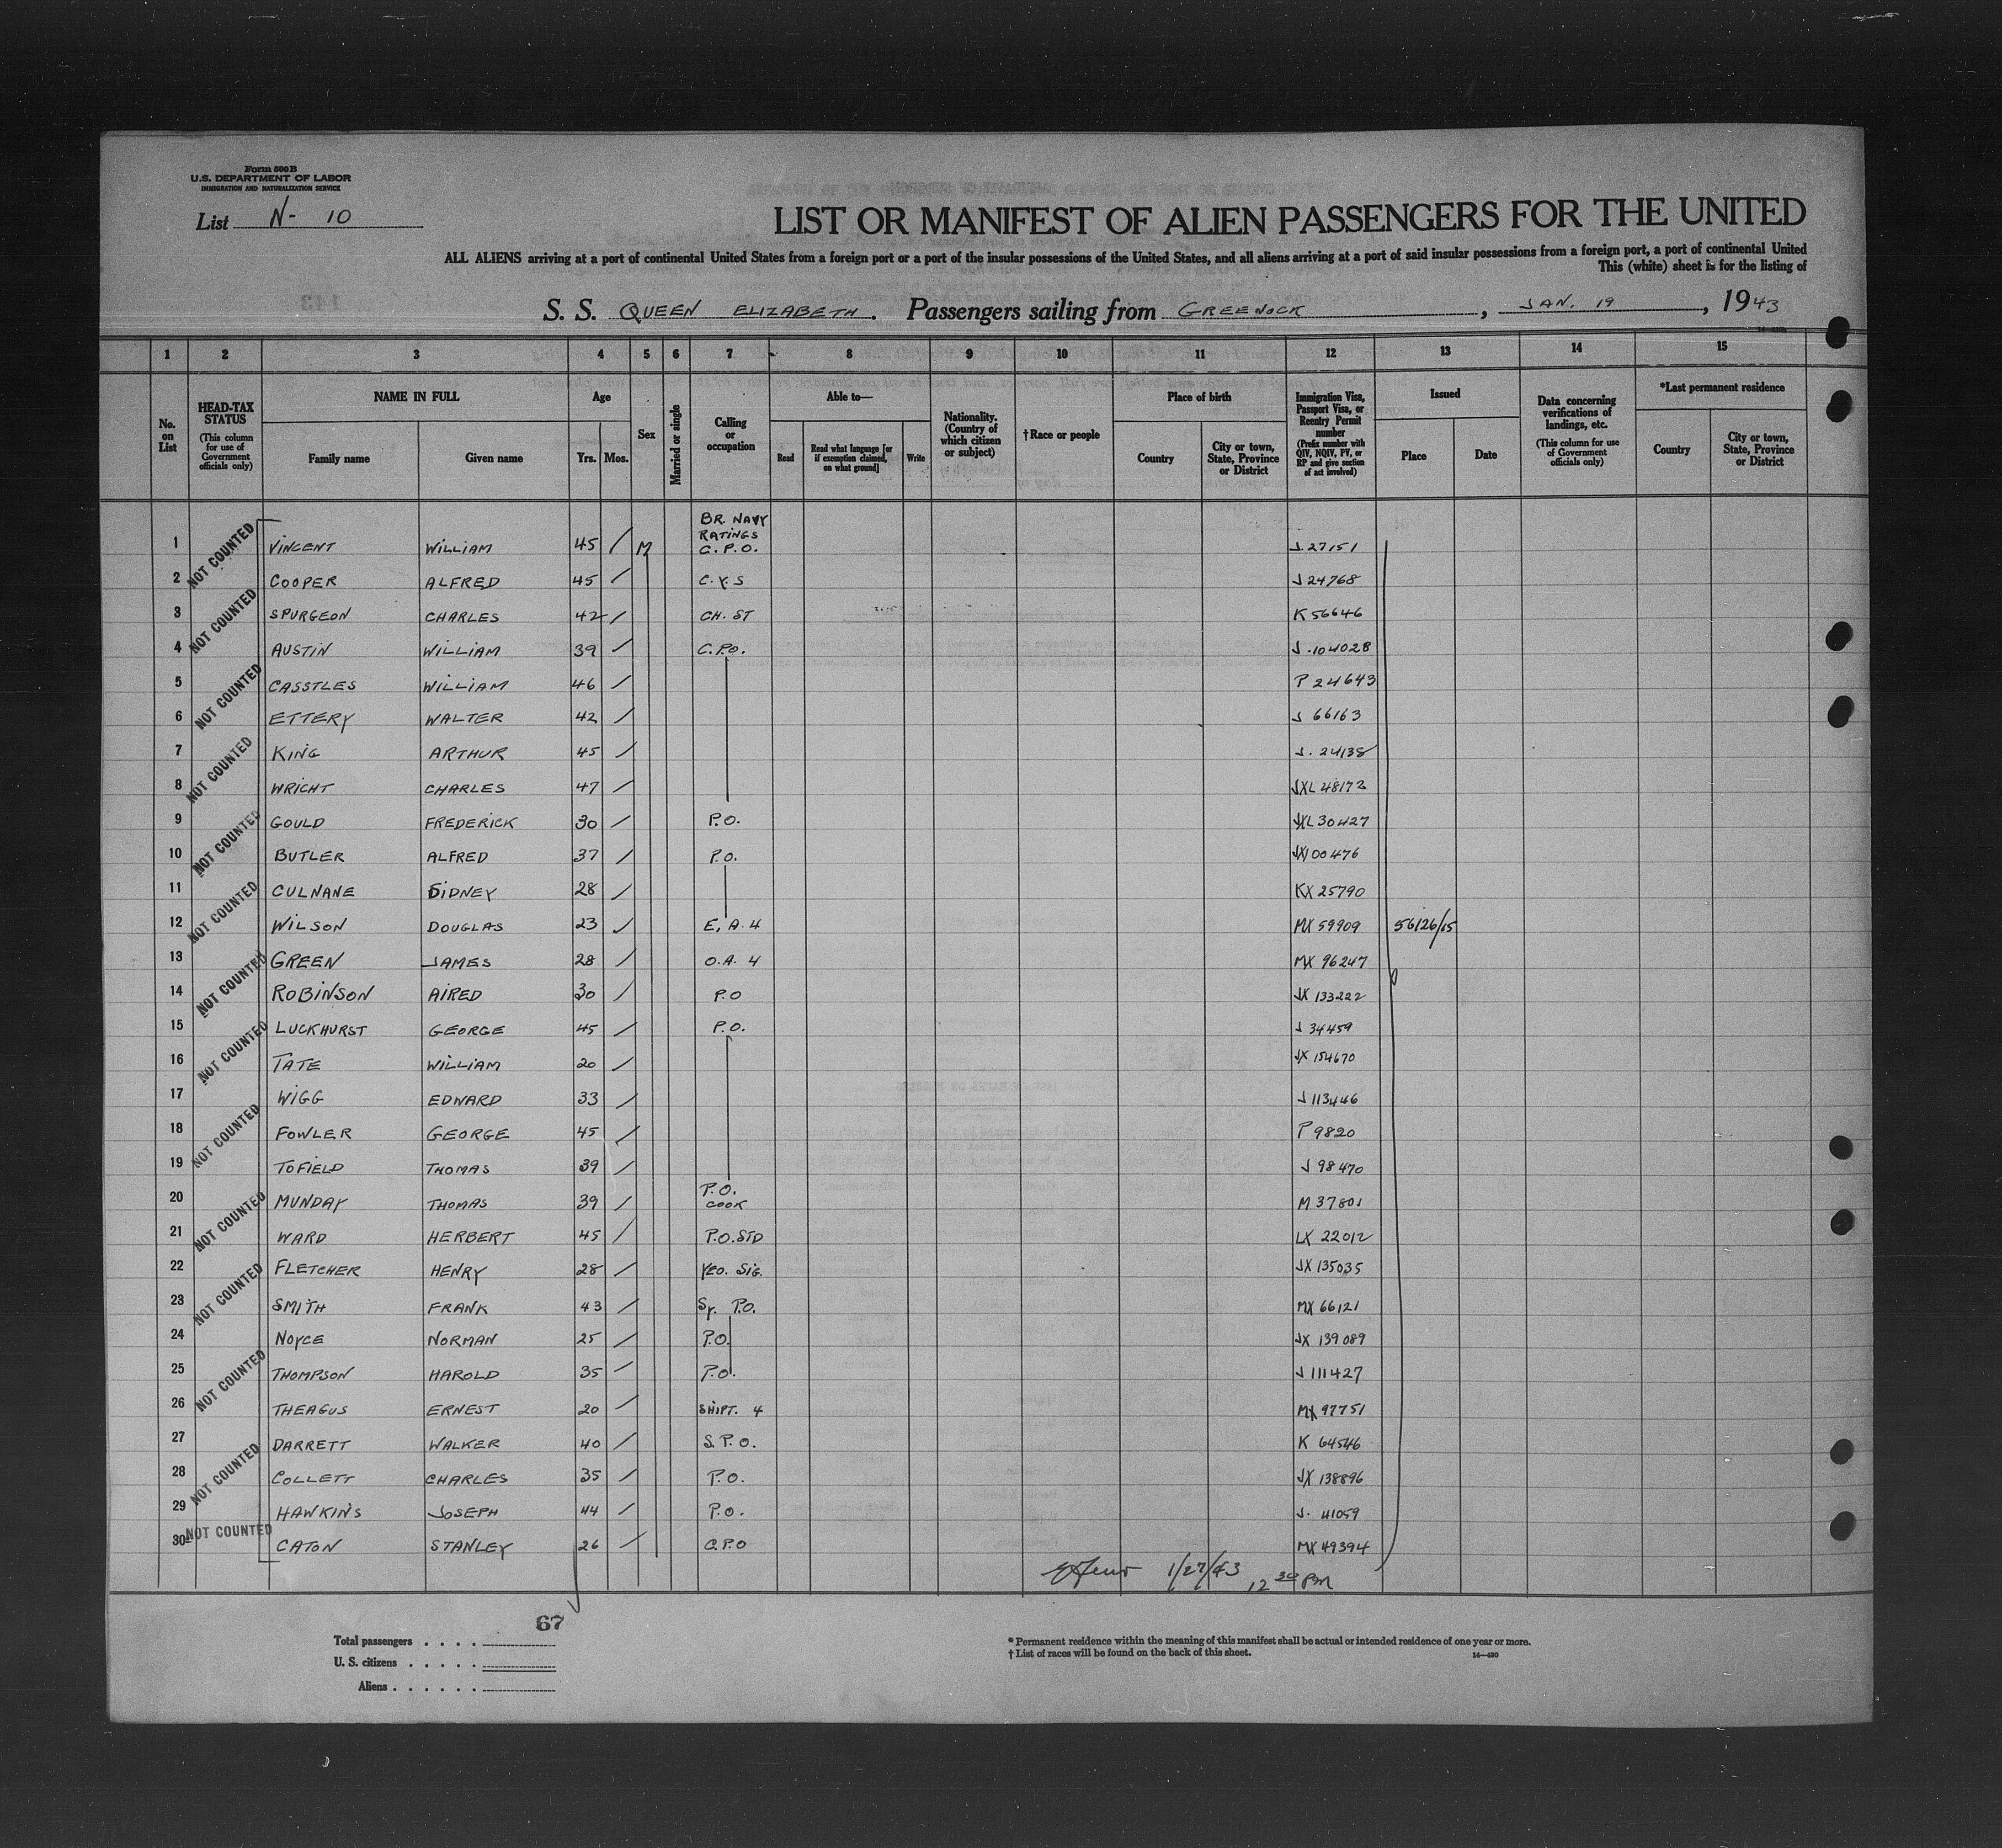 Form 500B
U.S. DEPARTMENT OF LABOR
IMMIGRATION AND NATURALIZATION SERVICE
List N- 10
LIST OR MANIFEST OF ALIEN PASSENGERS FOR THE UNITED
ALL ALIENS arriving at a port of continental United States from a foreign port or a port of the insular possessions of the United States, and all aliens arriving at a port of said insular possessions from a foreign port, a port of continental United
This (white) sheet is for the listing of
S. S. QUEEN ELIZABETH. Passengers sailing from GREENOCK, JAN. 19, 1943
1 2 3 4 5 6 7 8 9 10 11 12 13 14 15
No. on List
HEAD-TAX STATUS (This column for use of Government officials only)
NAME IN FULL
Family name Given name
Age
Yrs. Mos.
Sex
Married or single
Calling or occupation
Able to—
Read Read what language [or if exemption claimed, on what ground] Write
Nationality. (Country of which citizen or subject)
†Race or people
Place of birth
Country City or town, State, Province or District
Immigration Visa, Passport Visa, or Reentry Permit number (Prefix number with QIV, NQIV, PV, or RP and give section of act involved)
Issued
Place Date
Data concerning verifications of landings, etc. (This column for use of Government officials only)
*Last permanent residence
Country City or town, State, Province or District
BR. NAVY
RATINGS
1 VINCENT WILLIAM 45 M C.P.O. J.27151
2 COOPER ALFRED 45 C.Y.S J 24768
3 SPURGEON CHARLES 42 CH. ST K 56646
4 AUSTIN WILLIAM 39 C.P.O. J.104028
5 CASSTLES WILLIAM 46 P 24643
6 ETTERY WALTER 42 J 66163
7 KING ARTHUR 45 J. 24138
8 WRIGHT CHARLES 47 JXL 48173
9 GOULD FREDERICK 30 P.O. JXL 30427
10 BUTLER ALFRED 37 P.O. JX100476
11 CULNANE SIDNEY 28 KX 25790
12 WILSON DOUGLAS 23 E,A.4 MX 59909 56126/15
13 GREEN JAMES 28 O.A. 4 MX 96247
14 ROBINSON AIRED 30 P.O JX 133222
15 LUCKHURST GEORGE 45 P.O. J 34459
16 TATE WILLIAM 20 JX 154670
17 WIGG EDWARD 33 J 113446
18 FOWLER GEORGE 45 P 9820
19 TOFIELD THOMAS 39 J 98470
20 MUNDAY THOMAS 39 P.O. COOK M 37801
21 WARD HERBERT 45 P.O.STD LX 22012
22 FLETCHER HENRY 28 YEO. SIG. JX 135035
23 SMITH FRANK 43 Sy. P.O. MX 66121
24 NOYCE NORMAN 25 P.O. JX 139089
25 THOMPSON HAROLD 35 P.O. J 111427
26 THEAGUS ERNEST 20 SHIPT. 4 MX 97751
27 DARRETT WALKER 40 S.P.O. K 64546
28 COLLETT CHARLES 35 P.O. JX 138896
29 HAWKINS JOSEPH 44 P.O. J. 41059
30 CATON STANLEY 26 C.P.O MX 49394
NOT COUNTED
NOT COUNTED
NOT COUNTED
NOT COUNTED
NOT COUNTED
NOT COUNTED
NOT COUNTED
NOT COUNTED
NOT COUNTED
NOT COUNTED
NOT COUNTED
NOT COUNTED
NOT COUNTED
NOT COUNTED
1/27/43 12 30 PM
67
Total passengers
U. S. citizens
Aliens
* Permanent residence within the meaning of this manifest shall be actual or intended residence of one year or more.
† List of races will be found on the back of this sheet.
14—420